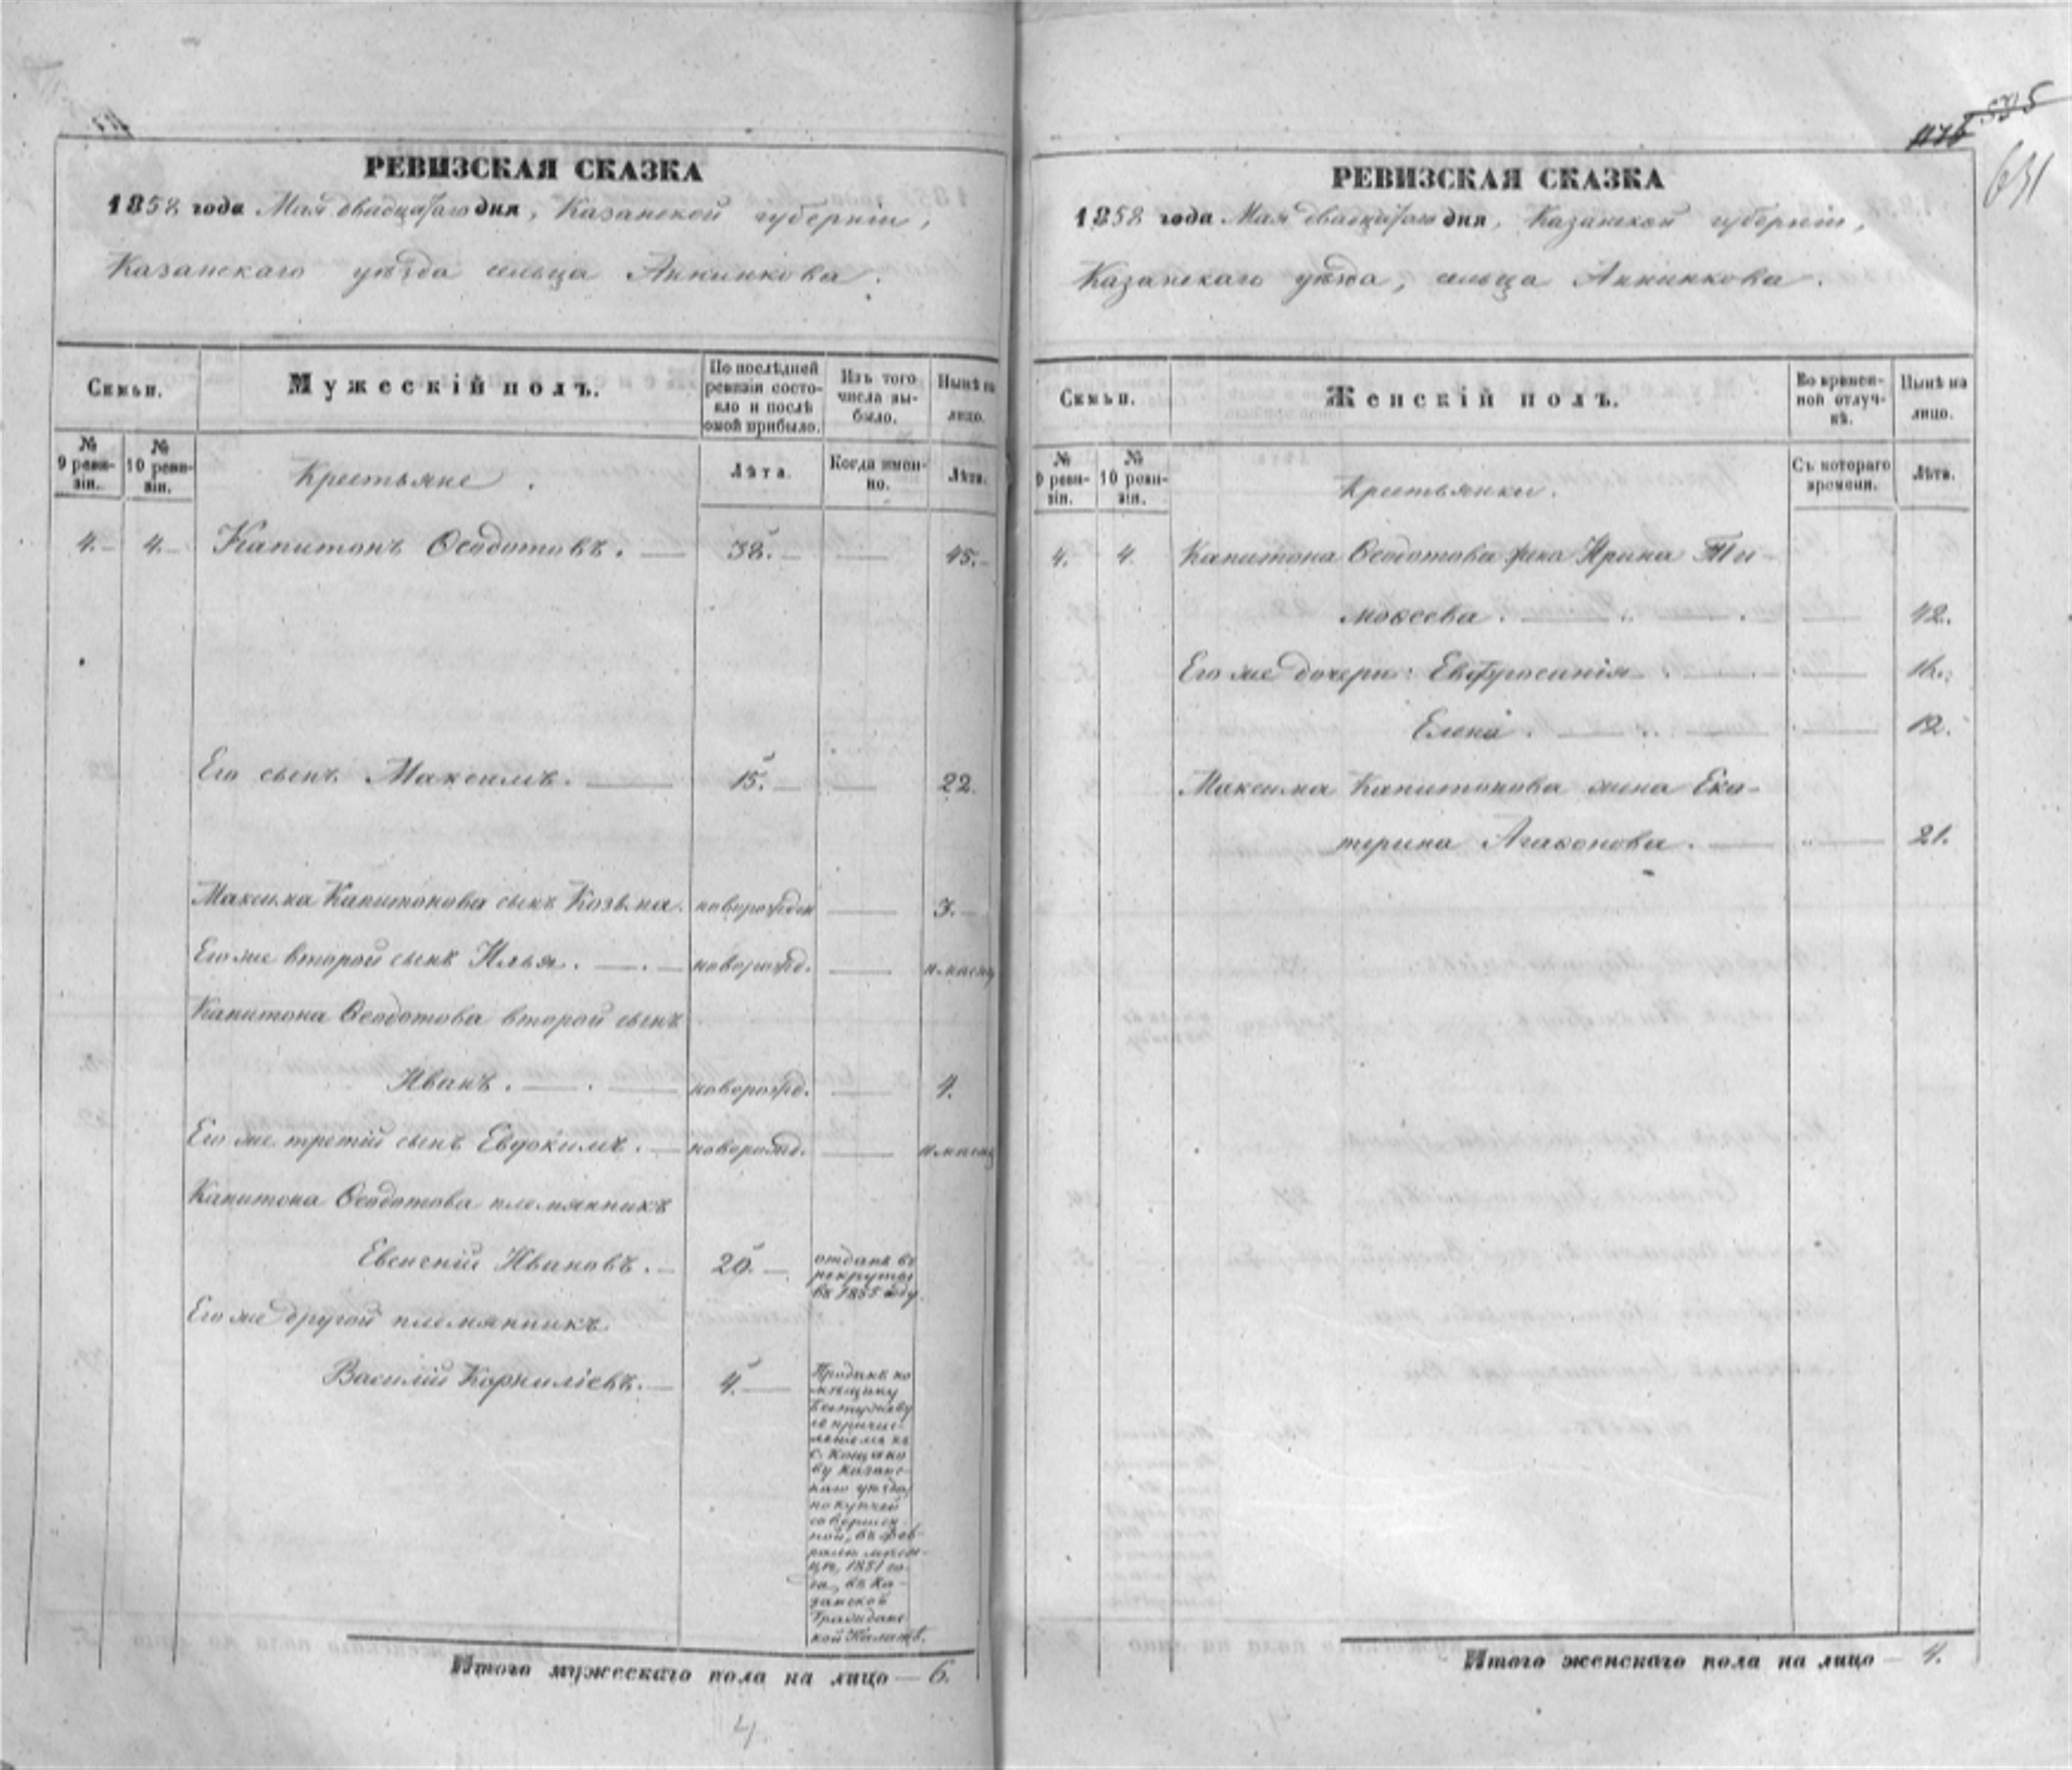 РЕВИЗСКАЯ СКАЗКА
1858 года Мая двадцатаго дня, Казанской губерніи,
Казанскаго уѣзда сельца Аннинкова.
Семьи.
Мужескій полъ.
По послѣдней ревизіи состояло и послѣ оной прибыло.
Изъ того числа выбыло.
Нынѣ на лицо.
№ 9 ревизіи.
№ 10 ревизіи.
Крестьяне.
Лѣта.
Когда именно.
Лѣта.
4. 4. Капитонъ Ѳеодотовъ. 38. 45.
Его сынъ Максимъ. 15. 22.
Максима Капитонова сынъ Козьма. новорожден 3.
Его же второй сынъ Илья. новорожд.
Капитона Ѳеодотова второй сынъ
Иванъ. новорожд. 4.
Его же третій сынъ Евдокимъ. новорожд.
Капитона Ѳеодотова племянникъ
Евсекій Ивановъ. 20. отданъ въ
рекруты
въ 1855 году.
Его же другой племянникъ
Василій Корниліевъ. 4. Проданъ по
мѣщику
съ причис-
леніемъ къ
с. Кощако
ву Казанс-
каго уѣзда,
по купчей
совершен-
ной, въ фев-
ралѣ меся-
цѣ, 1851 го-
да, въ Ка-
занской
Гражданс-
кой Палатѣ.
Итого мужескаго пола на лицо — 6.
4
535
631
РЕВИЗСКАЯ СКАЗКА
1858 года Мая двадцатаго дня, Казанской губерніи,
Казанскаго уѣзда, сельца Аннинкова.
Семьи.
Женскій полъ.
Во временной отлучкѣ.
Нынѣ на лицо.
№ 9 ревизіи.
№ 10 ревизіи.
Крестьянки.
Съ котораго времени.
Лѣта.
4. 4. Капитона Ѳеодотова жена Ирина Ти-
моѳеева. 42.
Его же дочери: Евфросинія. 16.
Елена. 12.
Максима Капитонова жена Ека-
терина Агаѳонова. 21.
Итого женскаго пола на лицо — 4.